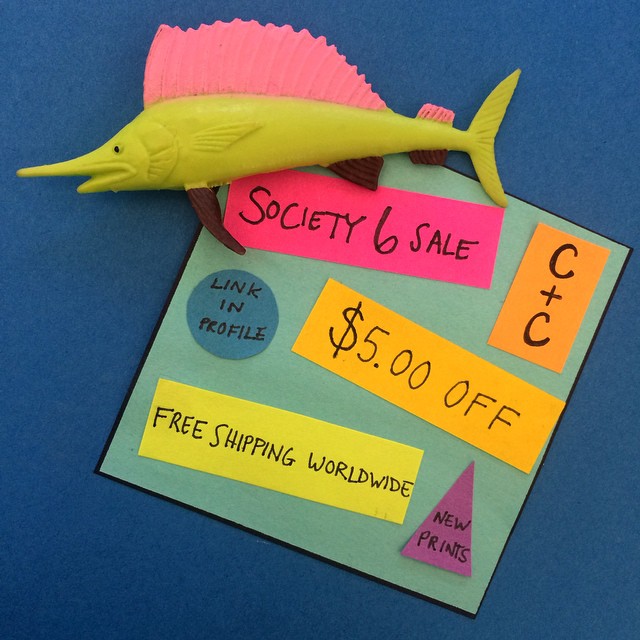 SOCIETY 6 SALE
C
+
C
LINK
IN
PROFILE
$5.00 OFF
FREE SHIPPING WORLDWIDE
NEW
PRINTS